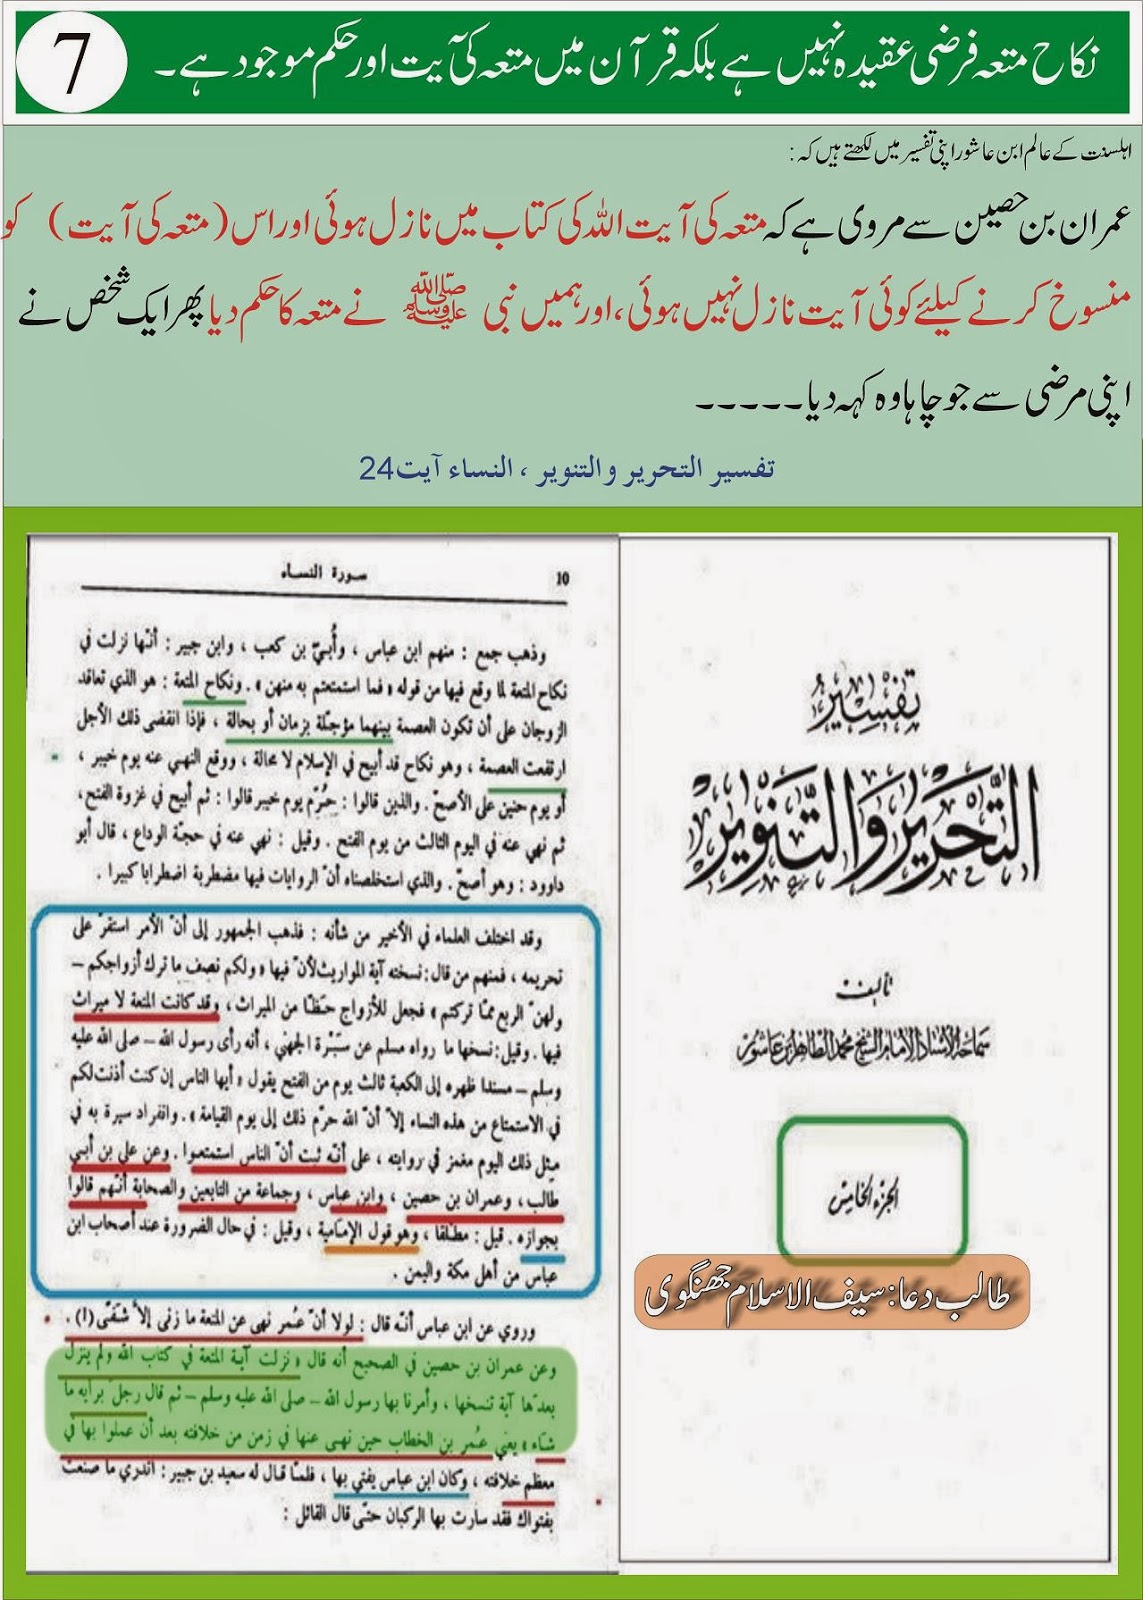 7
نکاح متعہ فرضی عقیدہ نہیں ہے بلکہ قرآن میں متعہ کی آیت اور حکم موجود ہے۔
اہلسنت کے عالم ابن عاشور اپنی تفسیر میں لکھتے ہیں کہ:
عمران بن حصین سے مروی ہے کہ متعہ کی آیت اللہ کی کتاب میں نازل ہوئی اور اس (متعہ کی آیت) کو
منسوخ کرنے کیلئے کوئی آیت نازل نہیں ہوئی، اور ہمیں نبی ﷺ نے متعہ کا حکم دیا پھر ایک شخص نے
اپنی مرضی سے جو چاہا وہ کہہ دیا۔۔۔۔۔
تفسیر التحریر والتنویر ، النساء آیت24
تفسير
التحرير والتنوير
تأليف
سماحة الأستاذ الإمام الشيخ محمد الطاهر ابن عاشور
الجزء الخامس
طالب دعا: سیف الاسلام جھنگوی
10
سورة النساء
وذهب جمع : منهم ابن عباس ، وأُبيّ بن كعب ، وابن جبير : أنّها نزلت في
نكاح المتعة لما وقع فيها من قوله «فما استمتعتم به منهن» . ونكاح المتعة : هو الذي تعاقد
الزوجان على أن تكون العصمة بينهما مؤجّلة بزمان أو بحالة ، فإذا انقضى ذلك الأجل
ارتفعت العصمة ، وهو نكاح قد أبيح في الإسلام لا محالة ، ووقع النهي عنه يوم خيبر ،
أو يوم حنين على الأصحّ . والذين قالوا : حُرّم يوم خيبر قالوا : ثم أبيح في غزوة الفتح،
ثم نهي عنه في اليوم الثالث من يوم الفتح . وقيل : نهي عنه في حجّة الوداع ، قال أبو
داوود : وهو أصحّ . والذي استخلصناه أنّ الروايات فيها مضطربة اضطرابا كبيرا .
وقد اختلف العلماء في الأخير من شأنه : فذهب الجمهور إلى أنّ الأمر استقرّ على
تحريمه ، فمنهم من قال : نسخته آية المواريث لأنّ فيها «ولكم نصف ما ترك أزواجكم –
ولهنّ الربع ممّا تركتم» فجعل للأزواج حظّا من الميراث ، وقد كانت المتعة لا ميراث
فيها . وقيل: نسخها ما رواه مسلم عن سَبْرة الجهني ، أنه رأى رسول الله – صلى الله عليه
وسلم – مسندا ظهره إلى الكعبة ثالث يوم من الفتح يقول «أيها الناس إن كنت أذنت لكم
في الاستمتاع من هذه النساء إلاّ أنّ الله حرّم ذلك إلى يوم القيامة» . وانفراد سبرة به في
مثل ذلك اليوم مغمز في روايته ، على أنّه ثبت أنّ الناس استمتعوا . وعن علي بن أبي
طالب ، وعمران بن حصين ، وابن عباس ، وجماعة من التابعين والصحابة أنّهم قالوا
بجوازه . قيل : مطلقا ، وهو قول الإمامية ، وقيل : في حال الضرورة عند أصحاب ابن
عباس من أهل مكة واليمن .
وروي عن ابن عباس أنّه قال : لولا أنّ عُمر نهى عن المتعة ما زنى إلاّ شَفًى (1) .
وعن عمران بن حصين في الصحيح أنه قال «نزلت آية المتعة في كتاب الله ولم ينزل
بعدها آية تنسخها ، وأمرنا بها رسول الله – صلى الله عليه وسلم – ثم قال رجل برأيه ما
شاء» يعني عُمر بن الخطاب حين نهى عنها في زمن من خلافته بعد أن عملوا بها في
معظم خلافته ، وكان ابن عباس يفتي بها ، فلمّا قال له سعيد بن جبير : أتدري ما صنعت
بفتواك فقد سارت بها الركبان حتّى قال القائل :